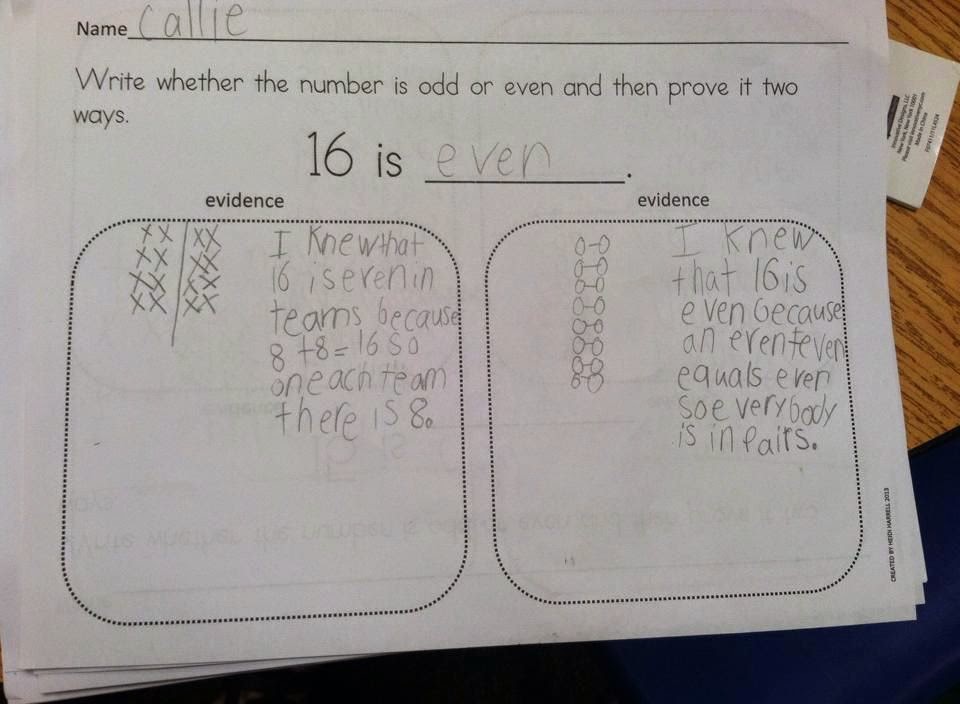 Name Callie
Write whether the number is odd or even and then prove it two
ways.
16 is even.
evidence
I Knew that
16 is even in
teams because
8 +8= 16 so
on each team
there is 8.
evidence
I knew
that 16 is
even because
an even+even
equals even
so everybody
is in Pairs.
CREATED BY HEIDI HARRELL 2013
Innovative Designs, LLC
New York, New York 10001
Made in China